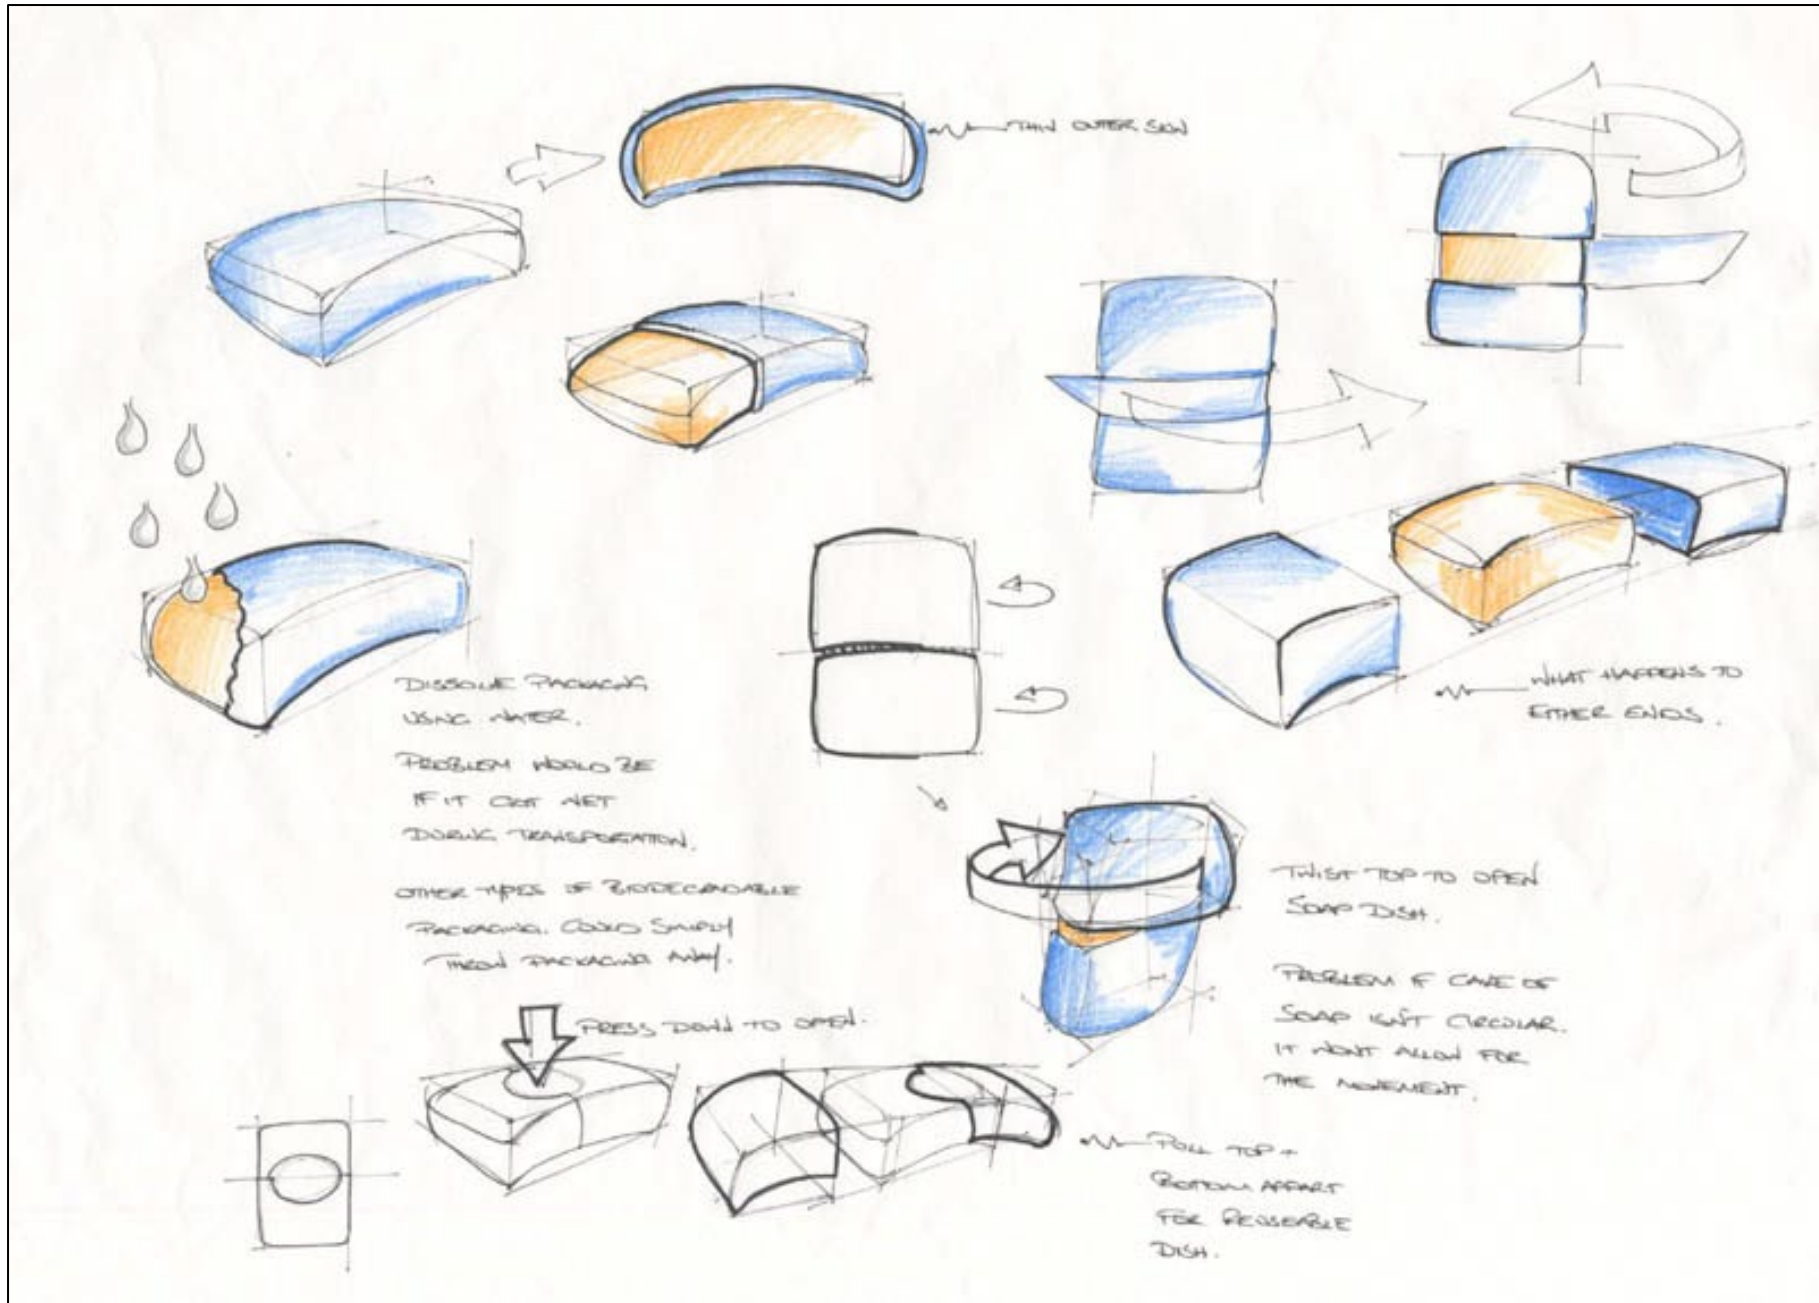 THIN OUTER SKIN
WHAT HAPPENS TO
EITHER ENDS.
DISSOLVE PACKAGING
USING WATER.
PROBLEM WOULD BE
IF IT GOT WET
DURING TRANSPORTATION.
OTHER TYPES OF BIODEGRADABLE
PACKAGING. COULD SIMPLY
THROW PACKAGING AWAY.
TWIST TOP TO OPEN
SOAP DISH.
PROBLEM IF CAKE OF
SOAP ISN'T CIRCULAR.
IT WONT ALLOW FOR
THE MOVEMENT.
PRESS DOWN TO OPEN.
PULL TOP +
BOTTOM APPART
FOR REUSEABLE
DISH.